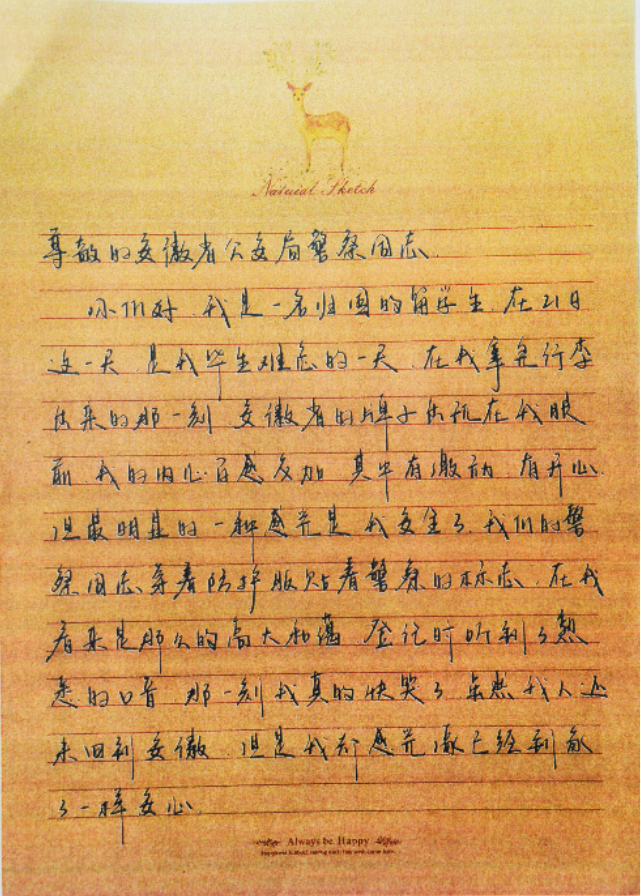 Natural Sketch
尊敬的安徽省公安局警察同志
你们好.我是一名归国的留学生.在21日
这一天.是我毕生难忘的一天.在我拿完行李
出来的那一刻 安徽省的牌子出现在我眼
前.我的内心百感交加 其中有激动.有开心.
但最明显的一种感觉是我安全了.我们的警
察同志穿着防护服贴着警察的标志.在我
看来是那么的高大和蔼 登记时听到了熟
悉的口音 那一刻我真的快哭了 虽然我人还
未回到安徽.但是我却感觉像已经到家
了一样安心.
Always be Happy